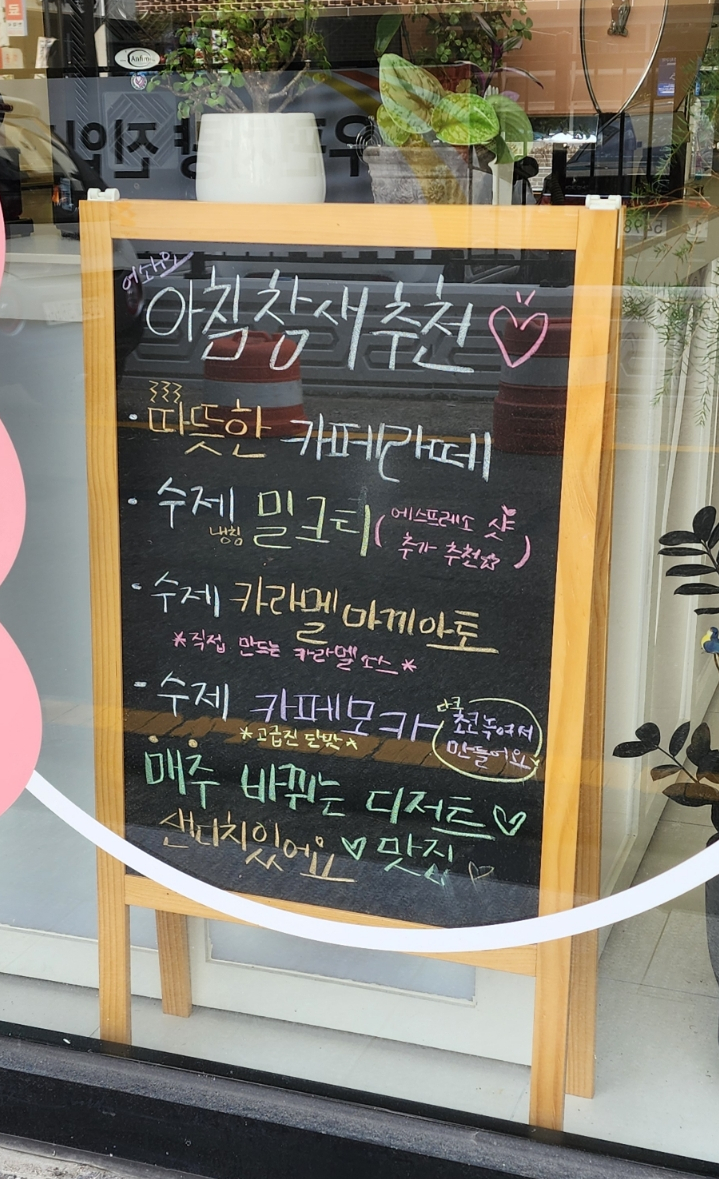 어서와요
아침 참새 추천
· 따뜻한 카페라떼
· 수제 냉침 밀크티 (에스프레소 샷
추가 추천)
· 수제 카라멜 마끼아토
*직접 만드는 카라멜 소스*
- 수제 카페모카
*고급진 단맛*
다크
초콜 녹여서
만들어요
매주 바뀌는 디저트
샌드위치있어요 맛집